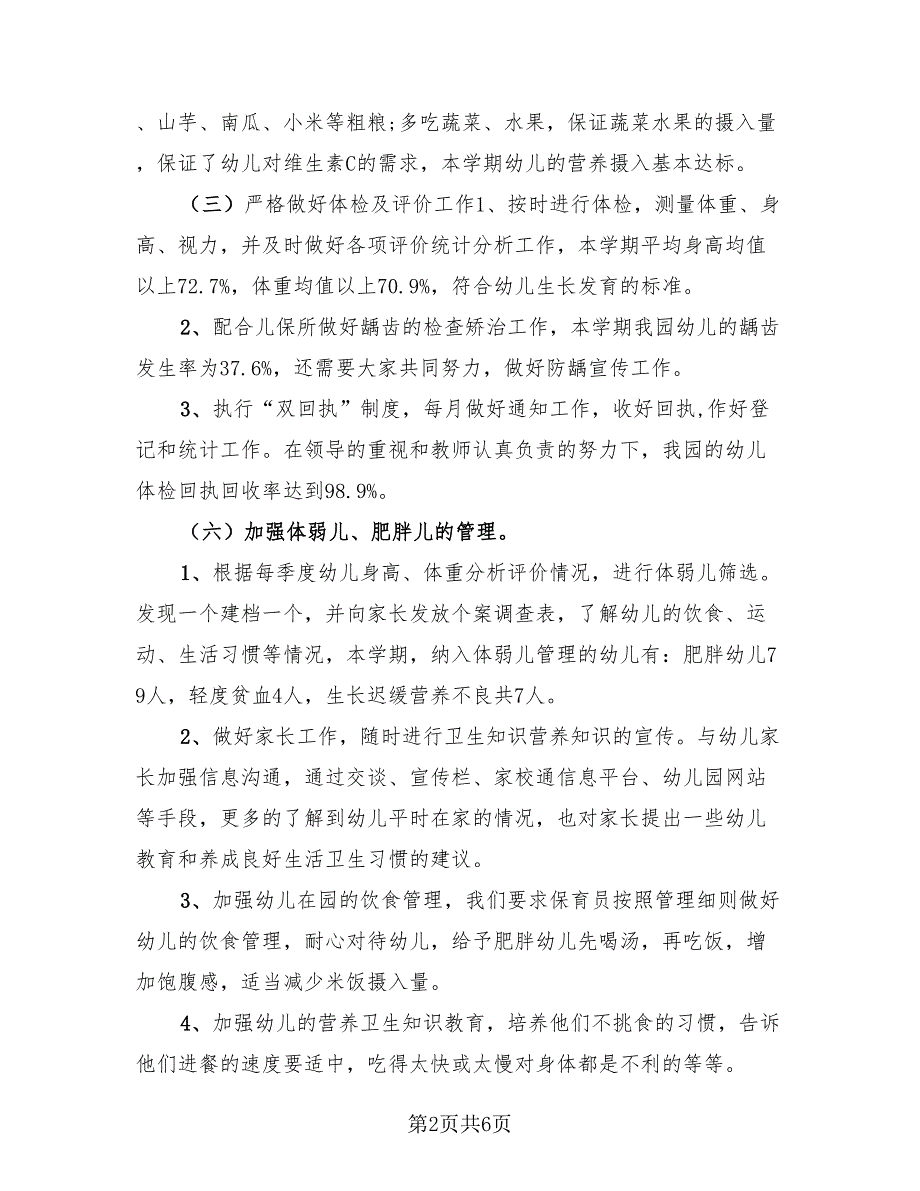 、山芋、南瓜、小米等粗粮;多吃蔬菜、水果，保证蔬菜水果的摄入量
，保证了幼儿对维生素C的需求，本学期幼儿的营养摄入基本达标。
（三）严格做好体检及评价工作1、按时进行体检，测量体重、身
高、视力，并及时做好各项评价统计分析工作，本学期平均身高均值
以上72.7%，体重均值以上70.9%，符合幼儿生长发育的标准。
2、配合儿保所做好龋齿的检查矫治工作，本学期我园幼儿的龋齿
发生率为37.6%，还需要大家共同努力，做好防龋宣传工作。
3、执行“双回执”制度，每月做好通知工作，收好回执,作好登
记和统计工作。在领导的重视和教师认真负责的努力下，我园的幼儿
体检回执回收率达到98.9%。
（六）加强体弱儿、肥胖儿的管理。
1、根据每季度幼儿身高、体重分析评价情况，进行体弱儿筛选。
发现一个建档一个，并向家长发放个案调查表，了解幼儿的饮食、运
动、生活习惯等情况，本学期，纳入体弱儿管理的幼儿有：肥胖幼儿7
9人，轻度贫血4人，生长迟缓营养不良共7人。
2、做好家长工作，随时进行卫生知识营养知识的宣传。与幼儿家
长加强信息沟通，通过交谈、宣传栏、家校通信息平台、幼儿园网站
等手段，更多的了解到幼儿平时在家的情况，也对家长提出一些幼儿
教育和养成良好生活卫生习惯的建议。
3、加强幼儿在园的饮食管理，我们要求保育员按照管理细则做好
幼儿的饮食管理，耐心对待幼儿，给予肥胖幼儿先喝汤，再吃饭，增
加饱腹感，适当减少米饭摄入量。
4、加强幼儿的营养卫生知识教育，培养他们不挑食的习惯，告诉
他们进餐的速度要适中，吃得太快或太慢对身体都是不利的等等。
第2页共6页